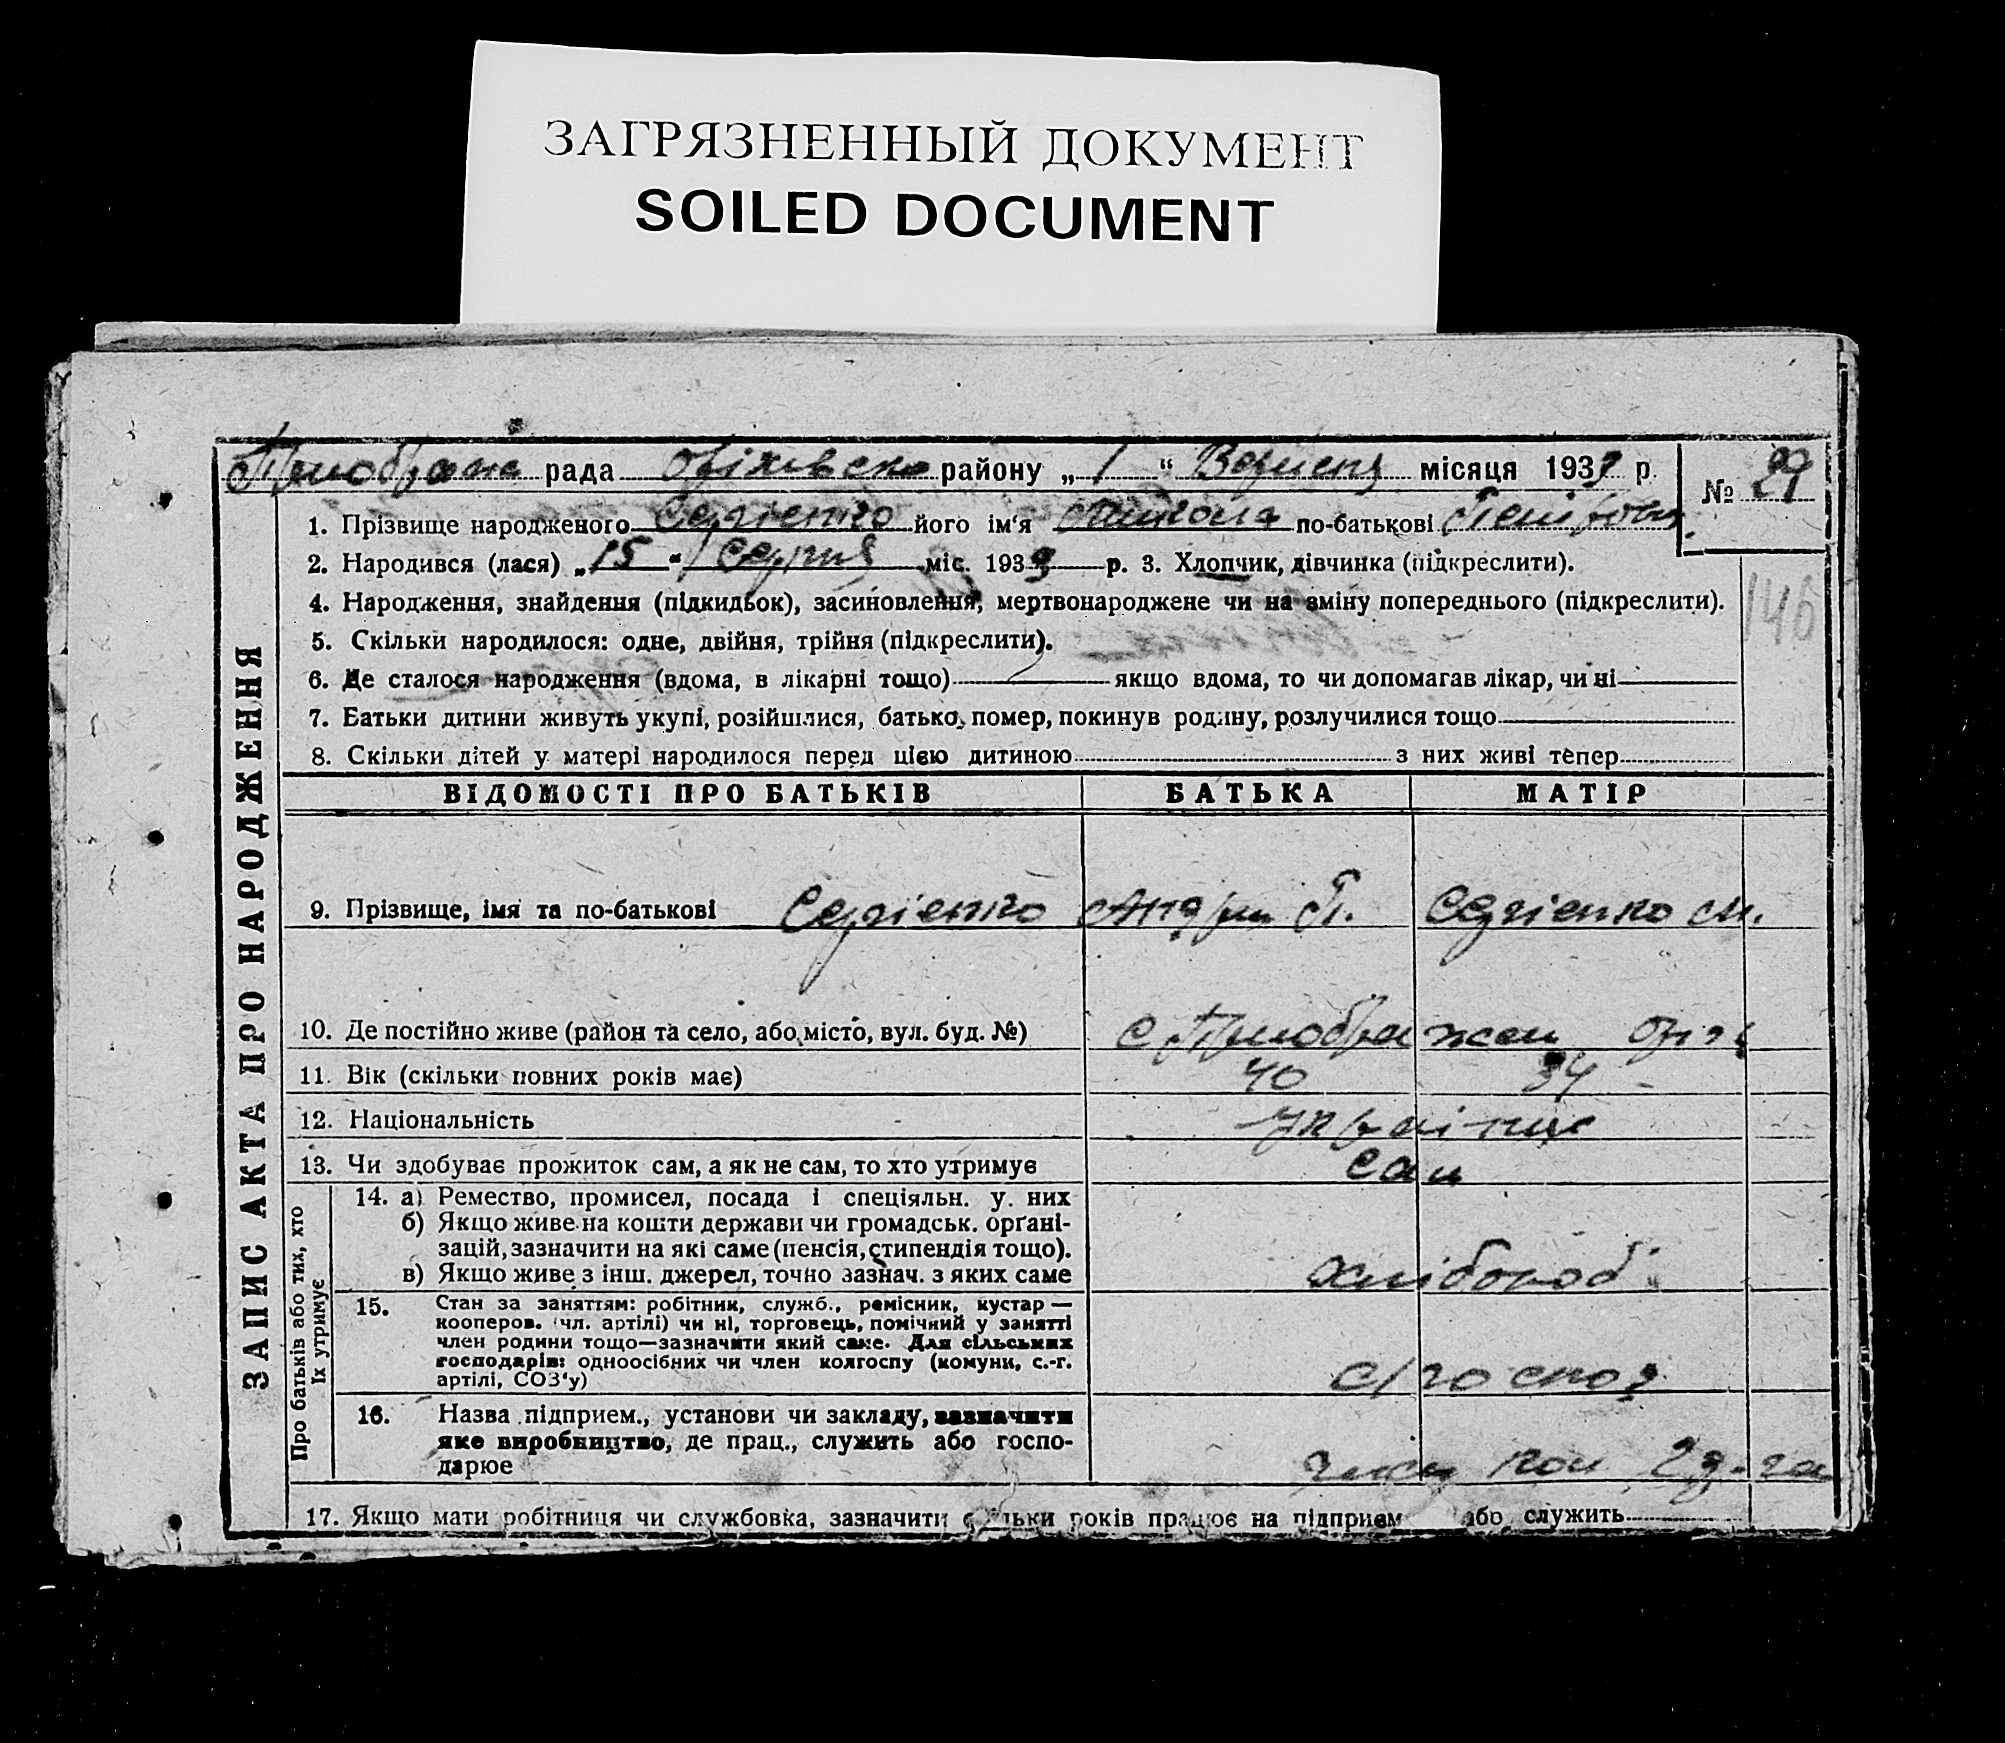 ЗАГРЯЗНЕННЫЙ ДОКУМЕНТ
SOILED DOCUMENT
рада Оріхівська району „ 1 “ Вересня місяця 193 р. № 29
1. Прізвище народженого Сергієнко його ім‘я Микола по-батькові
2. Народився (лася) „ 15 “ Серпня міс. 193 р. 3. Хлопчик, дівчинка (підкреслити).
146
4. Народження, знайдення (підкидьок), засиновлення, мертвонароджене чи на зміну попереднього (підкреслити).
5. Скільки народилося: одне, двійня, трійня (підкреслити).
6. Де сталося народження (вдома, в лікарні тощо) якщо вдома, то чи допомагав лікар, чи ні
7. Батьки дитини живуть укупі, розійшлися, батько помер, покинув родину, розлучилися тощо
8. Скільки дітей у матері народилося перед цією дитиною з них живі тепер
ЗАПИС АКТА ПРО НАРОДЖЕННЯ
ВІДОМОСТІ ПРО БАТЬКІВ БАТЬКА МАТІР
9. Прізвище, імя та по-батькові Сергієнко Андрій П. Сергієнко М.
10. Де постійно живе (район та село, або місто, вул. буд. №) с Преображен Оріх
11. Вік (скільки повних років має) 40 34
12. Національність українці
13. Чи здобуває прожиток сам, а як не сам, то хто утримує сам
Про батьків або тих, хто
їх утримує
14. а) Ремество, промисел, посада і спеціяльн. у них
б) Якщо живе на кошти держави чи громадськ. орґані-
зацій, зазначити на які саме (пенсія, стипендія тощо).
в) Якщо живе з інш. джерел, точно зазнач. з яких саме хлібороб
15. Стан за заняттям: робітник, служб., ремісник, кустар —
кооперов. (чл. артілі) чи ні, торговець, помічний у занятті
член родини тощо—зазначити який саме. Для сільських
господарів: одноосібних чи член колгоспу (комуни, с.-г.
артілі, СОЗ‘у) с/господ
16. Назва підприєм., установи чи закладу, зазначити
яке виробництво, де прац., служить або госпо-
дарює
17. Якщо мати робітниця чи службовка, зазначити скільки років працює на підприєм або служить